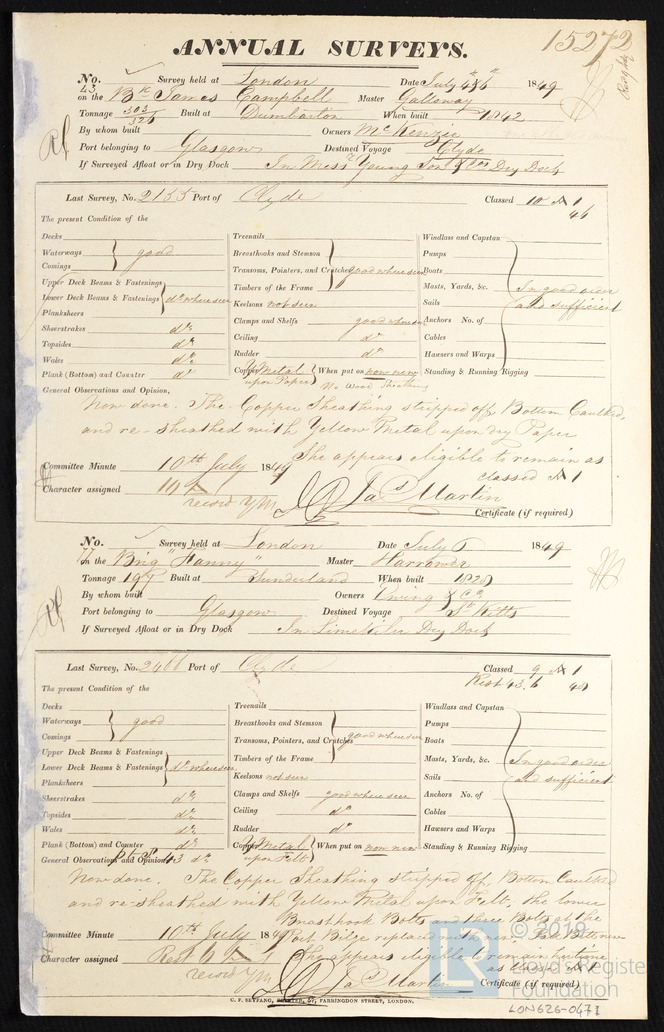 15272
ANNUAL SURVEYS.
No. 43 Survey held at London Date July 1849
on the Bk James Campbell Master Galloway
Tonnage 303/326 Built at Dumbarton When built 1842
By whom built Owners McKenzie
Port belonging to Glasgow Destined Voyage Clyde
If Surveyed Afloat or in Dry Dock In Messrs Young Son & Cos Dry Dock
Last Survey, No. 2155 Port of Clyde Classed 10 A 1
46
The present Condition of the
Decks
Waterways good
Comings
Upper Deck Beams & Fastenings
Lower Deck Beams & Fastenings do where seen
Planksheers
Sheerstrakes do
Topsides do
Wales do
Plank (Bottom) and Counter do
Treenails
Breasthooks and Stemson
Transoms, Pointers, and Crutches good where seen
Timbers of the Frame
Keelsons not seen
Clamps and Shelfs good where seen
Ceiling do
Rudder do
Copper Y Metal upon Paper When put on now new
No Wood Sheathing
Windlass and Capstan
Pumps
Boats
Masts, Yards, &c. In good order
Sails and sufficient
Anchors No. of
Cables
Hawsers and Warps
Standing & Running Rigging
General Observations and Opinion,
Now done. The Copper Sheathing stripped off, Bottom Caulked,
and re-sheathed with Yellow Metal upon dry Paper
She appears eligible to remain as
classed A 1
Committee Minute 10th July 1849
Character assigned 10 A 1
record YM
Jas Martin
Certificate (if required)
No. 77 Survey held at London Date July 6 1849
on the Brig "Fanny" Master Harrower
Tonnage 197 Built at Sunderland When built 1828
By whom built Owners Ewing & Co
Port belonging to Glasgow Destined Voyage St Kitts
If Surveyed Afloat or in Dry Dock In Limekiln Dry Dock
Last Survey, No. 2466 Port of Clyde Classed 9 A 1
Rest 43. 6
The present Condition of the
Decks
Waterways good
Comings
Upper Deck Beams & Fastenings
Lower Deck Beams & Fastenings do where seen
Planksheers
Sheerstrakes do
Topsides do
Wales do
Plank (Bottom) and Counter do
Treenails
Breasthooks and Stemson
Transoms, Pointers, and Crutches good where seen
Timbers of the Frame
Keelsons not seen
Clamps and Shelfs good where seen
Ceiling do
Rudder do
Copper Y Metal upon Felt When put on now new
Windlass and Capstan
Pumps
Boats
Masts, Yards, &c. In good order
Sails and sufficient
Anchors No. of
Cables
Hawsers and Warps
Standing & Running Rigging
General Observations and Opinion, 43 do
Now done. The Copper Sheathing stripped off, Bottom Caulked
and re-sheathed with Yellow Metal upon Felt. the lower
Breasthook Bolts and three Bolts at the
Port Bilge replaced with new.
She appears eligible to remain
as classed A 1
Committee Minute 10th July 1849
Character assigned Rest 6 A 1
record YM
Jas Martin
Certificate (if required)
C. F. SEYFANG, PRINTER, 57, FARRINGDON STREET, LONDON.
© 2019
LR
Lloyd's Register
Foundation
LON626-0471